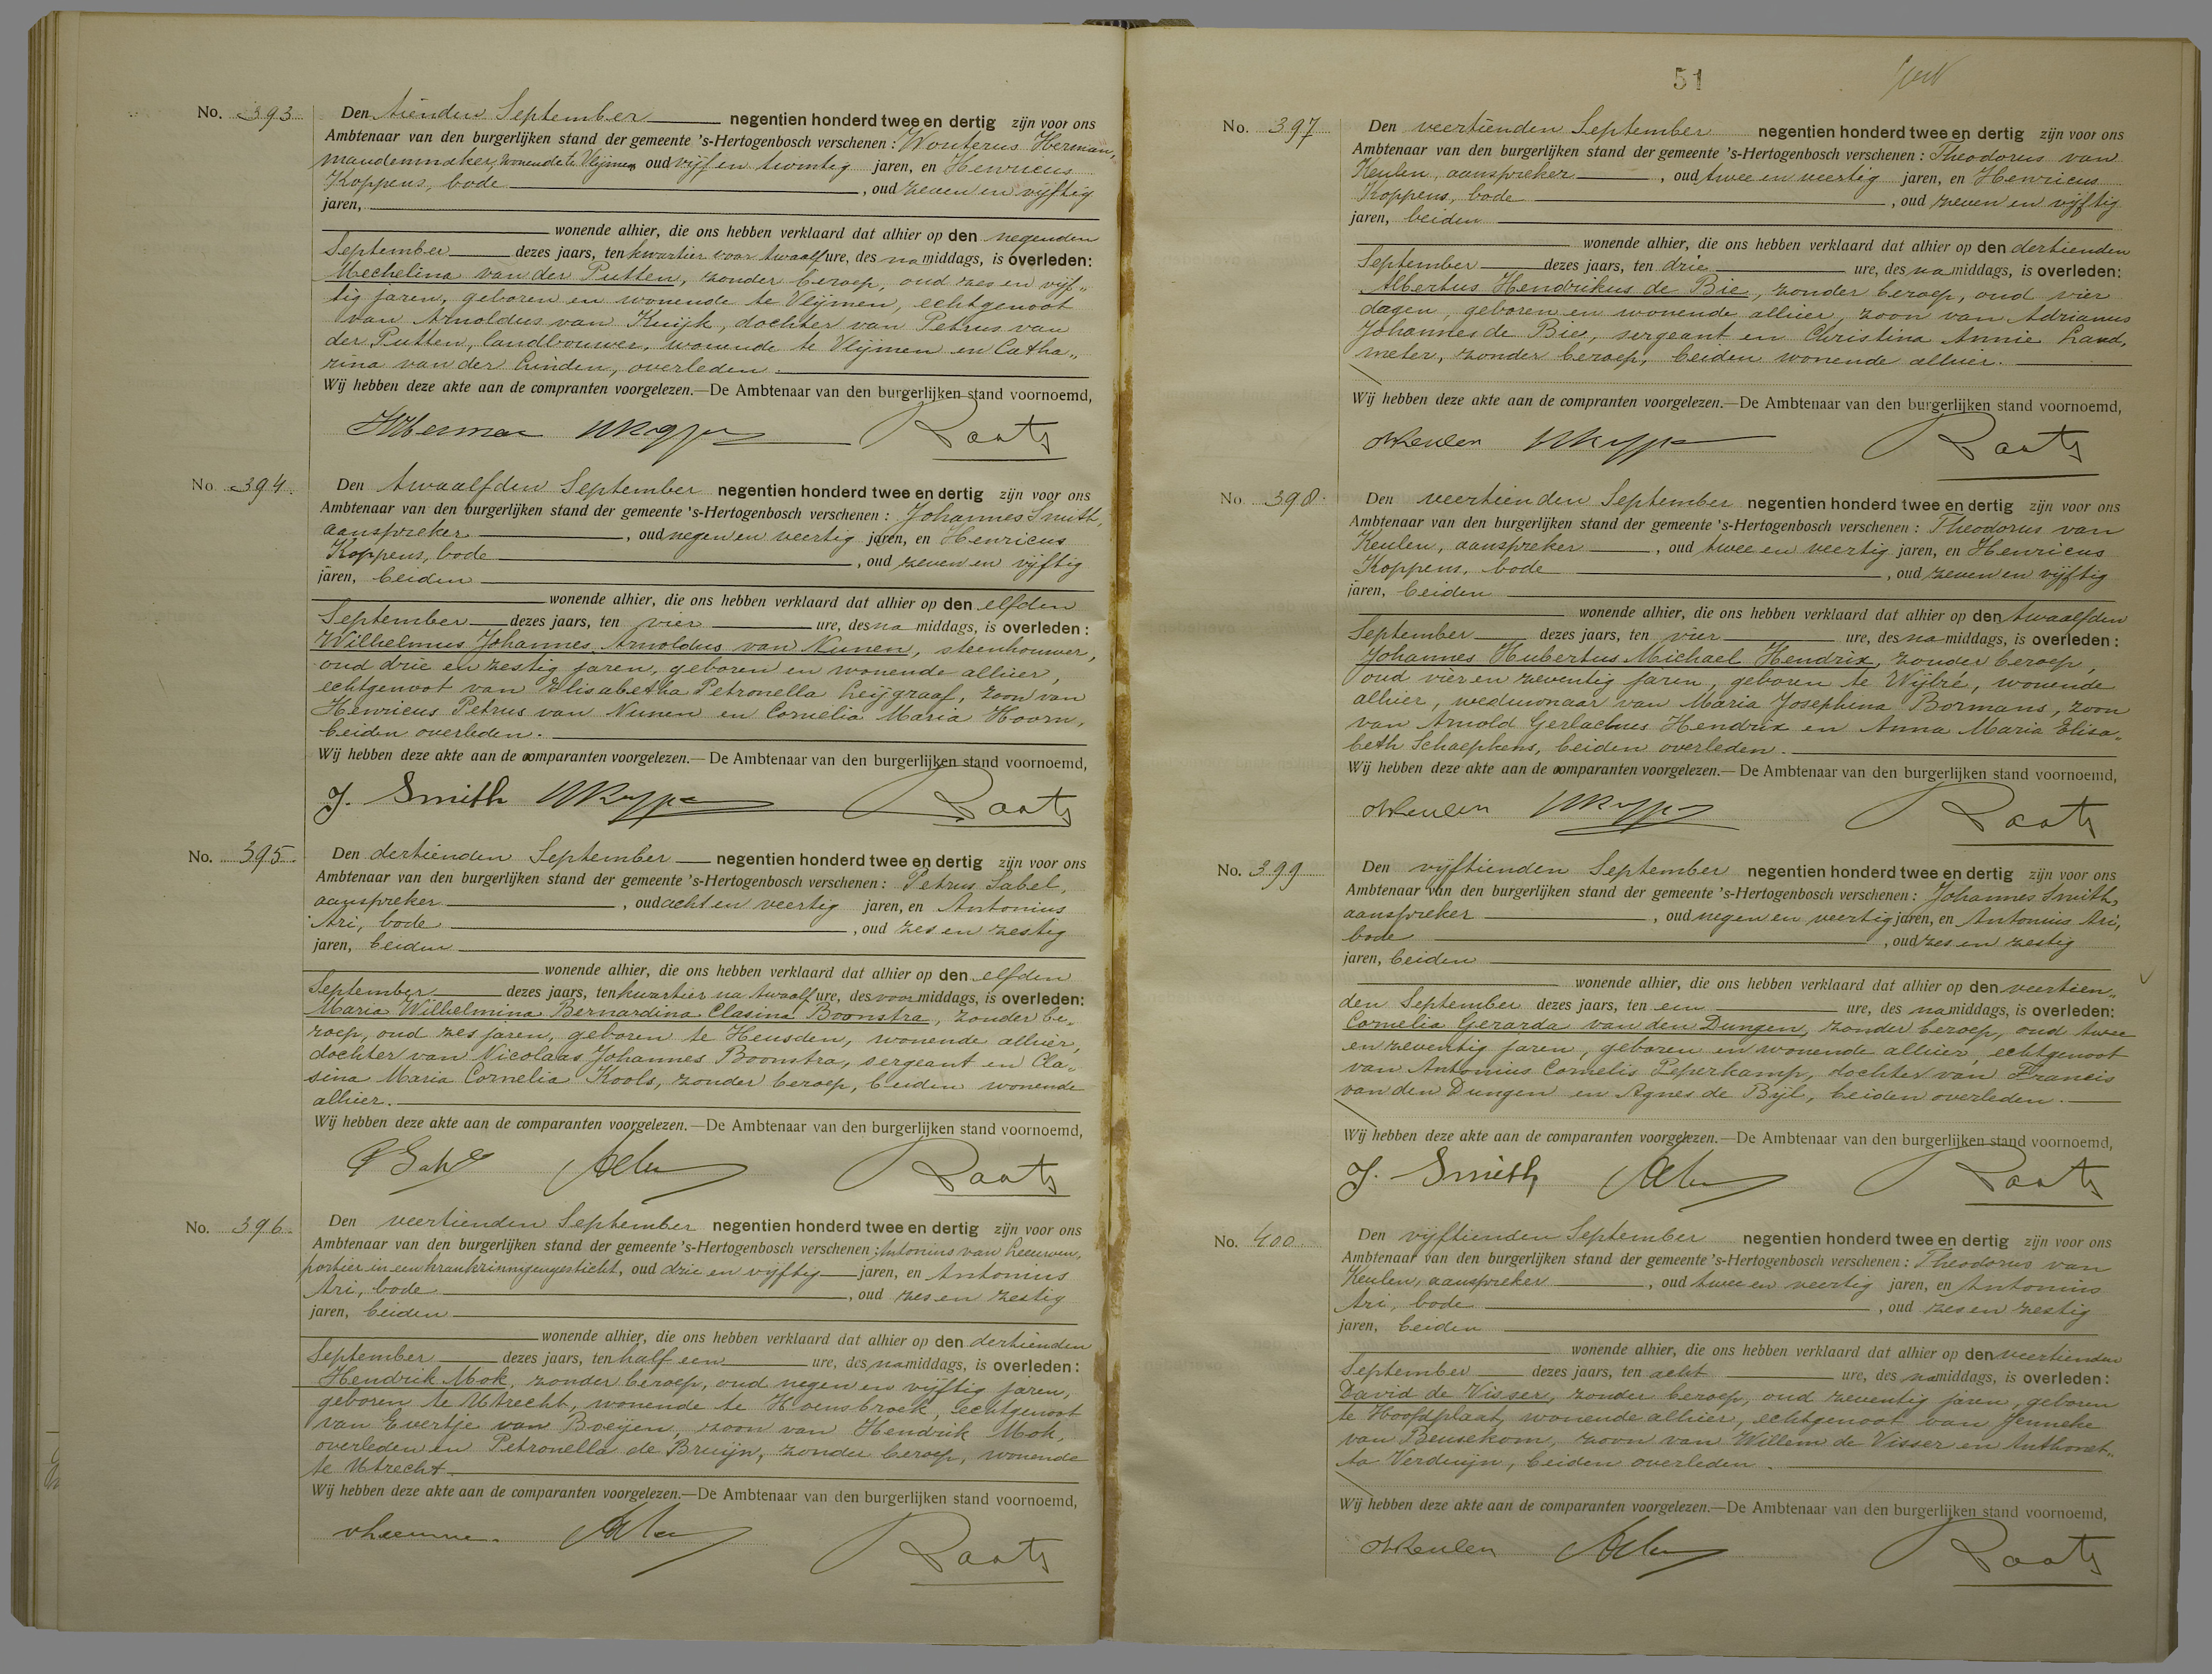 No. 393
Den tienden September negentien honderd twee en dertig zijn voor ons
Ambtenaar van den burgerlijken stand der gemeente 's-Hertogenbosch verschenen: Wouterus Herman,
mandenmaker, wonende te Vlijmen oud vijf en twintig jaren, en Henricus
Koppens, bode, oud zeven en vijftig
jaren,
wonende alhier, die ons hebben verklaard dat alhier op den negenden
September dezes jaars, ten kwartier voor twaalf ure, des namiddags, is overleden:
Mechelina van der Putten, zonder beroep, oud zes en vijf„
tig jaren, geboren en wonende te Vlijmen, echtgenoot
van Arnoldus van Kuijk, dochter van Petrus van
der Putten, landbouwer, wonende te Vlijmen en Catha„
rina van der Linden, overleden.
Wij hebben deze akte aan de compranten voorgelezen.—De Ambtenaar van den burgerlijken stand voornoemd,
WHerman HKoppens Raats
No. 394.
Den twaalfden September negentien honderd twee en dertig zijn voor ons
Ambtenaar van den burgerlijken stand der gemeente 's-Hertogenbosch verschenen: Johannes Smith,
aanspreker, oud negen en veertig jaren, en Henricus
Koppens, bode, oud zeven en vijftig
jaren, beiden
wonende alhier, die ons hebben verklaard dat alhier op den elfden
September dezes jaars, ten vier ure, des na middags, is overleden:
Wilhelmus Johannes Arnoldus van Nunen, steenhouwer,
oud drie en zestig jaren, geboren en wonende alhier,
echtgenoot van Elisabetha Petronella Leijgraaf, zoon van
Henricus Petrus van Nunen en Cornelia Maria Hoorn,
beiden overleden.
Wij hebben deze akte aan de comparanten voorgelezen.—De Ambtenaar van den burgerlijken stand voornoemd,
J. Smith HKoppens Raats
No. 395.
Den dertienden September negentien honderd twee en dertig zijn voor ons
Ambtenaar van den burgerlijken stand der gemeente 's-Hertogenbosch verschenen: Petrus Sabel,
aanspreker, oud acht en veertig jaren, en Antonius
Ari, bode, oud zes en zestig
jaren, beiden
wonende alhier, die ons hebben verklaard dat alhier op den elfden
September dezes jaars, ten kwartier na twaalf ure, des voormiddags, is overleden:
Maria Wilhelmina Bernardina Clasina Boonstra, zonder be„
roep, oud zes jaren, geboren te Heusden, wonende alhier,
dochter van Nicolaas Johannes Boonstra, sergeant en Cla„
sina Maria Cornelia Kools, zonder beroep, beiden wonende
alhier.
Wij hebben deze akte aan de comparanten voorgelezen.—De Ambtenaar van den burgerlijken stand voornoemd,
P Sabel A Ari Raats
No. 396.
Den veertienden September negentien honderd twee en dertig zijn voor ons
Ambtenaar van den burgerlijken stand der gemeente 's-Hertogenbosch verschenen: Antonius van Leeuwen,
portier in een krankzinnigengesticht, oud drie en vijftig jaren, en Antonius
Ari, bode, oud zes en zestig
jaren, beiden
wonende alhier, die ons hebben verklaard dat alhier op den dertienden
September dezes jaars, ten half een ure, des namiddags, is overleden:
Hendrik Mok, zonder beroep, oud negen en vijftig jaren,
geboren te Utrecht, wonende te Hoensbroek, echtgenoot
van Evertje van Boeijen, zoon van Hendrik Mok,
overleden en Petronella de Bruijn, zonder beroep, wonende
te Utrecht.
Wij hebben deze akte aan de comparanten voorgelezen.—De Ambtenaar van den burgerlijken stand voornoemd,
vLeeuwen. A Ari Raats
51
No. 397
Den veertienden September negentien honderd twee en dertig zijn voor ons
Ambtenaar van den burgerlijken stand der gemeente 's-Hertogenbosch verschenen: Theodorus van
Keulen, aanspreker, oud twee en veertig jaren, en Henricus
Koppens, bode, oud zeven en vijftig
jaren, beiden
wonende alhier, die ons hebben verklaard dat alhier op den dertienden
September dezes jaars, ten drie ure, des namiddags, is overleden:
Albertus Hendrikus de Bie, zonder beroep, oud vier
dagen, geboren en wonende alhier, zoon van Adrianus
Johannes de Bie, sergeant en Christina Annie Land„
meter, zonder beroep, beiden wonende alhier.
Wij hebben deze akte aan de compranten voorgelezen.—De Ambtenaar van den burgerlijken stand voornoemd,
vKeulen HKoppens Raats
No. 398.
Den veertienden September negentien honderd twee en dertig zijn voor ons
Ambtenaar van den burgerlijken stand der gemeente 's-Hertogenbosch verschenen: Theodorus van
Keulen, aanspreker, oud twee en veertig jaren, en Henricus
Koppens, bode, oud zeven en vijftig
jaren, beiden
wonende alhier, die ons hebben verklaard dat alhier op den twaalfden
September dezes jaars, ten vier ure, des namiddags, is overleden:
Johannes Hubertus Michael Hendrix, zonder beroep,
oud vier en zeventig jaren, geboren te Wijlré, wonende
alhier, weduwnaar van Maria Josephina Bormans, zoon
van Arnold Gerlachus Hendrix en Anna Maria Elisa„
beth Schaepkens, beiden overleden.
Wij hebben deze akte aan de comparanten voorgelezen.—De Ambtenaar van den burgerlijken stand voornoemd,
vKeulen HKoppens Raats
No. 399
Den vijftienden September negentien honderd twee en dertig zijn voor ons
Ambtenaar van den burgerlijken stand der gemeente 's-Hertogenbosch verschenen: Johannes Smith,
aanspreker, oud negen en veertig jaren, en Antonius Ari,
bode, oud zes en zestig
jaren, beiden
wonende alhier, die ons hebben verklaard dat alhier op den veertien„
den September dezes jaars, ten een ure, des namiddags, is overleden:
Cornelia Gerarda van den Dungen, zonder beroep, oud twee
en zeventig jaren, geboren en wonende alhier, echtgenoot
van Antonius Cornelis Peperkamp, dochter van Francis
van den Dungen en Agnes de Bijl, beiden overleden.
Wij hebben deze akte aan de comparanten voorgelezen.—De Ambtenaar van den burgerlijken stand voornoemd,
J. Smith A Ari Raats
No. 400.
Den vijftienden September negentien honderd twee en dertig zijn voor ons
Ambtenaar van den burgerlijken stand der gemeente 's-Hertogenbosch verschenen: Theodorus van
Keulen, aanspreker, oud twee en veertig jaren, en Antonius
Ari, bode, oud zes en zestig
jaren, beiden
wonende alhier, die ons hebben verklaard dat alhier op den veertienden
September dezes jaars, ten acht ure, des namiddags, is overleden:
David de Visser, zonder beroep, oud zeventig jaren, geboren
te Hoofdplaat, wonende alhier, echtgenoot van Jenneke
van Beusekom, zoon van Willem de Visser en Anthonet„
ta Verduijn, beiden overleden.
Wij hebben deze akte aan de comparanten voorgelezen.—De Ambtenaar van den burgerlijken stand voornoemd,
vKeulen A Ari Raats